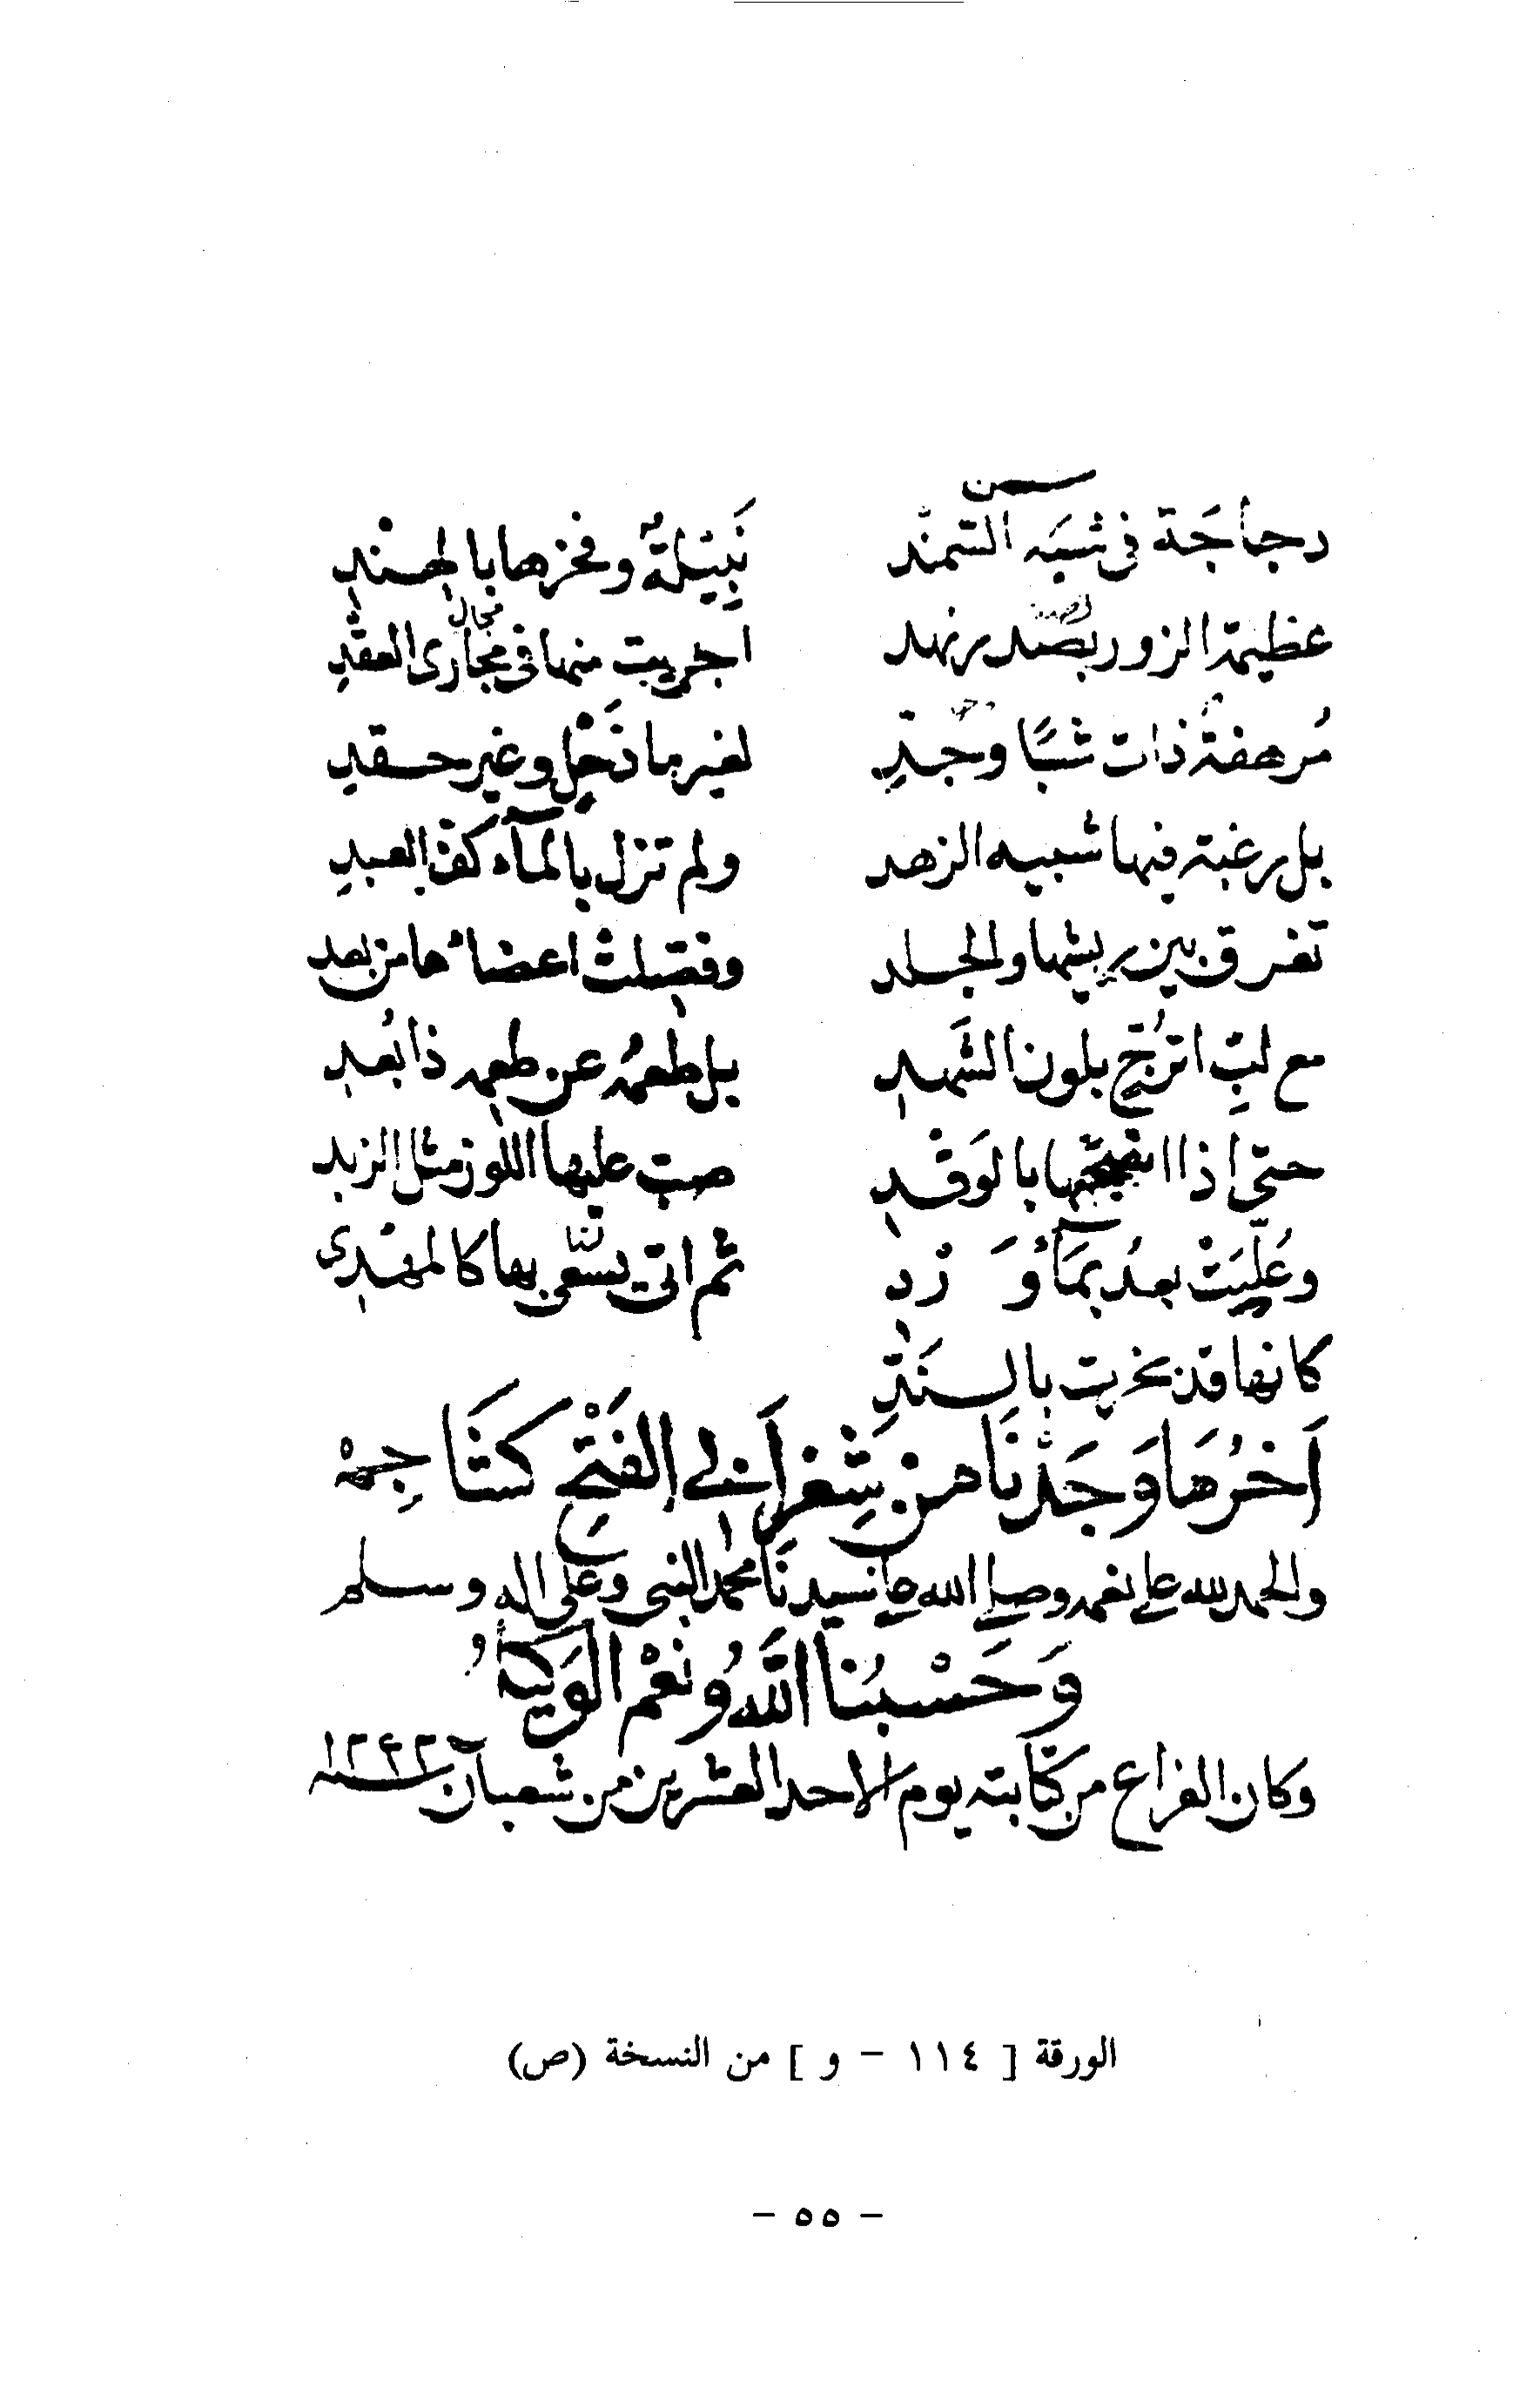 دجاجَة فى شَبَه السمند نَبِيَلةٌ وفخرها بالهند
عظيمة الزور بصدر نهد اجريت منها فى مجارى العقد
مُرهفةً ذات شبًا وحدِّ لغير ما ذَحْلٍ وغير حقد
بل رغبة فيها شبيه الزهد ولم تزل بالمآء كف العبدِ
تفرق بين ريشها والجلد وفصلت اعضاءها من بعد
مع لبّ اترُجّ بلون الشَهد بل طعمُه عن طعمه ذا بُعد
حتى اذا انضجها بالوَقْد صب عليها اللوز مثل الزبد
وعُلِيَتْ بعدُ بمَآءِ وَرْدِ ثم اتى يسعى بها كالمهدى
كانها قد بخرت بالندِّ
آخرُها وَجَدْنَا منْ شِعْرِ أبى الفَتْحِ كشَاجِمْ
والحمد لله على نعمه وصلى الله على سيدنا محمد النبى وعلى اله وسلم
وَحَسْبُنا اللَّهُ ونعْم الوَكيلُ
وكان الفراغ من كتابته يوم الاحد العشرين من شعبان سنة
الورقة [ ١١٤ - و ] من النسخة (ص)
- ٥٥ -